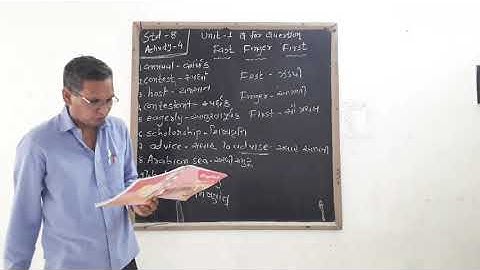 Std - 8 Unit - 1 Q for Question
Activity - 4 Fast Finger First
1. annual - વાર્ષિક
2. contest - સ્પર્ધા Fast - ઝડપી
3. host - યજમાન Finger - આંગળી
4. contestant - સ્પર્ધક
5. eagerly - First -
6. scholarship - શિષ્યવૃત્તિ
7. advice - સલાહ To advise - સલાહ આપવી
8. Arabian sea - અરબી સમુદ્ર